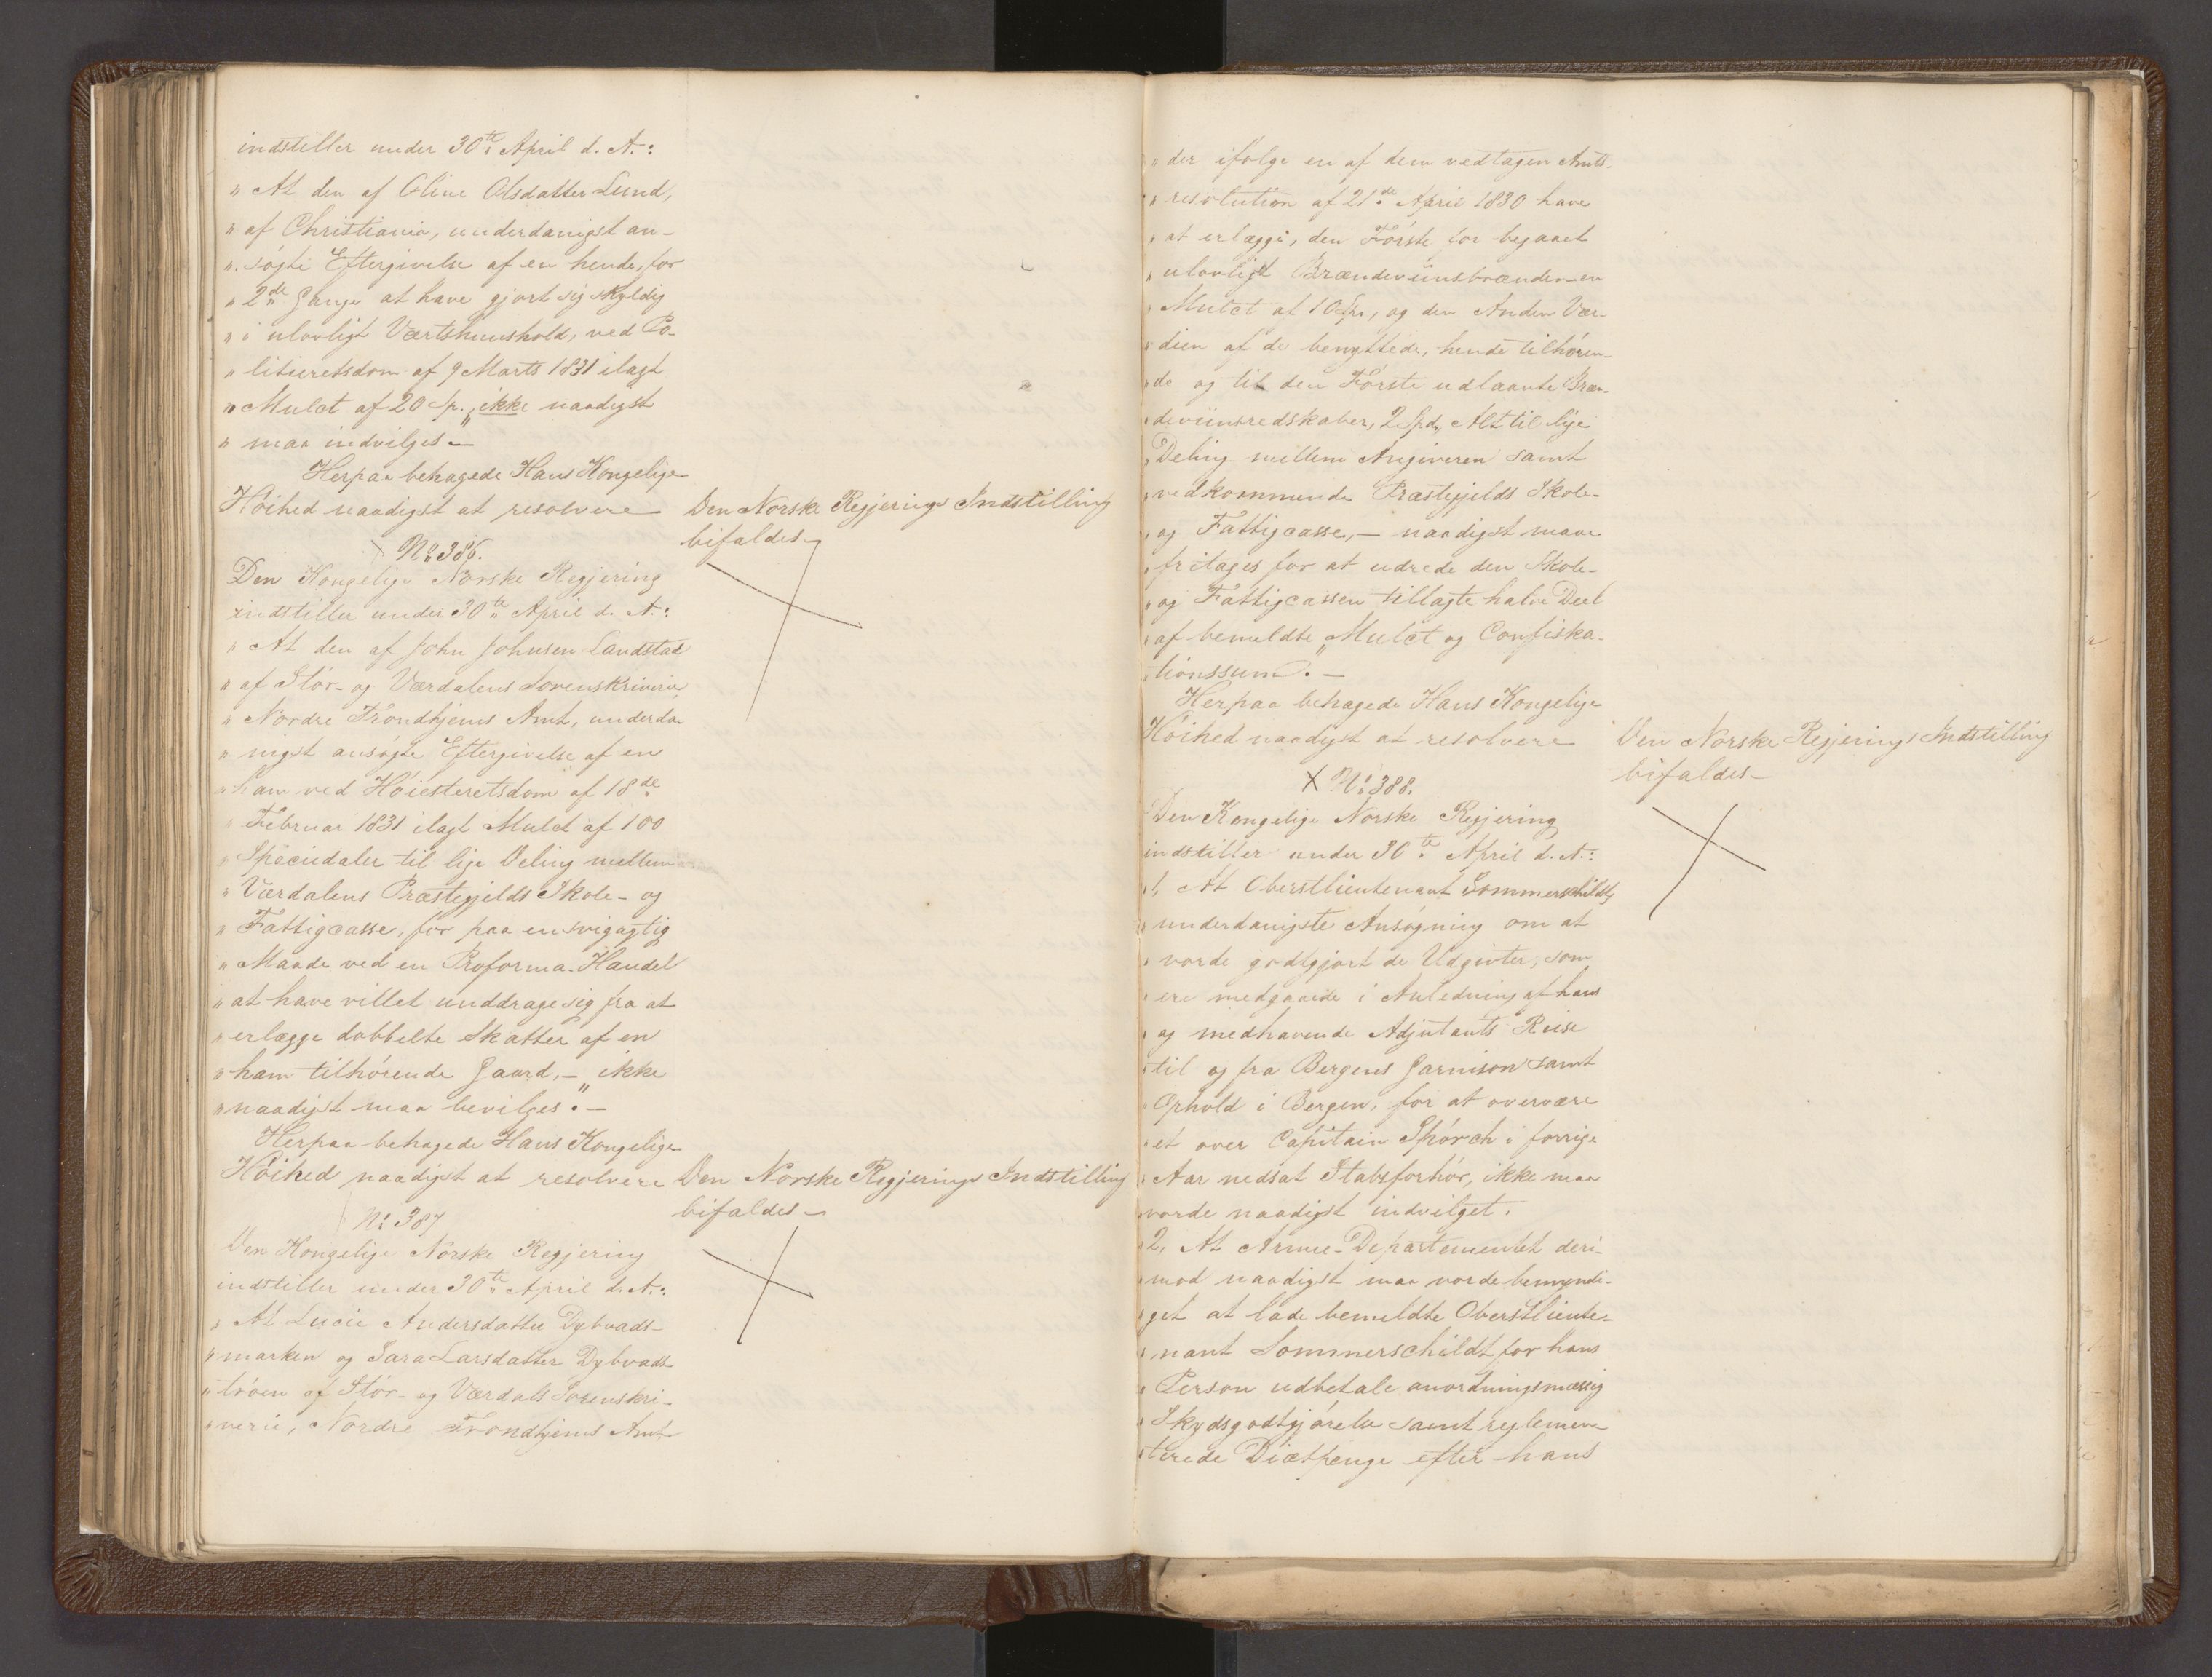 indstiller under 30te April d. A.:
" At den af Oline Olsdatter Lund,
" af Christiania, underdanigst an-
" søgte Eftergivelse af en hende, for
" 2de Gange at have gjort sig skyldig
" i ulovligt Værtshuushold, ved Po-
" litieretsdom af 9 Marts 1831 ilagt
" Mulct af 20 Sp., "ikke naadigst
" maa indvilges.-
Herpaa behagede Hans Kongelige
Høihed naadigst at resolvere
Den Norske Regjerings Indstilling
bifaldes-
No 386.
Den Kongelige Norske Regjering
indstiller under 30te April d. A.:
" At den af John Johnsen Landstad
" af Stør- og Værdalens Sorenskriverie
" Nordre Trondhjems Amt, underda-
" nigst ansøgte Eftergivelse af en
" ham ved Høiesteretsdom af 18de
" Februar 1831 ilagt Mulct af 100
" Speciedaler til lige Deling mellem
" Værdalens Præstegjelds Skole- og
" Fattigcasse, for paa en svigagtig
" Maade ved en Proforma-Handel
" at have villet unddrage sig fra at
" erlægge dobbelte Skatter af en
" ham tilhørende Gaard, - "ikke
" naadigst maa bevilges". -
Herpaa behagede Hans Kongelige
Høihed naadigst at resolvere
Den Norske Regjerings Indstilling
bifaldes-
No 387
Den Kongelige Norske Regjering
indstiller under 30te April d. A.:
" At Lucie Andersdatter Dybvads-
" marken og Sara Larsdatter Dybvads-
" trøen af Stør- og Værdals Sorenskri-
" verie, Nordre Trondhjems Amt
" der ifølge en af dem vedtagen Amts-
" resolution af 21de April 1830 have
" at erlægge, den Første for begaaet
" ulovligt Brændeviinsbrænden en
" Mulct af 10 Spd, og den Anden Vær-
" dien af de benyttede, hende tilhøren-
" de og til den Første udlaante Bræn-
" deviinsredskaber, 2 Spd, Alt til lige
" Deling mellem Angiveren samt
" vedkommende Præstegjelds Skole-
" og Fattigcasse, - naadigst maae
" fritages for at udrede den Skole-
" og Fattigcassen tillagte halve Deel
" af bemeldte Mulct og Confiska-
" tionssum". -
Herpaa behagede Hans Kongelige
Høihed naadigst at resolvere
Den Norske Regjerings Indstilling
bifaldes-
X No 388.
Den Kongelige Norske Regjering
indstiller under 30te April d. A.:
" 1, At Oberstlieutenant Sommerschildts
" underdanigste Ansøgning om at
" vorde godtgjort de Udgivter, som
" ere medgaaede i Anledning af hans
" og medhavende Adjutants Reise
" til og fra Bergens Garnison samt
" Ophold i Bergen, for at overvære
" et over Capitain Spørch i forrige
" Aar nedsat Stabsforhør, ikke maa
" vorde naadigst indvilget.
" 2, At Armee-Departementet deri-
" mod naadigst maa vorde bemyndi-
" get at lade bemeldte Oberstlieute-
" nant Sommerschildt for hans
" Person udbetale anordningsmæssig
" Skydsgodtgjørelse samt reglemen-
" terede Diætpenge efter hans